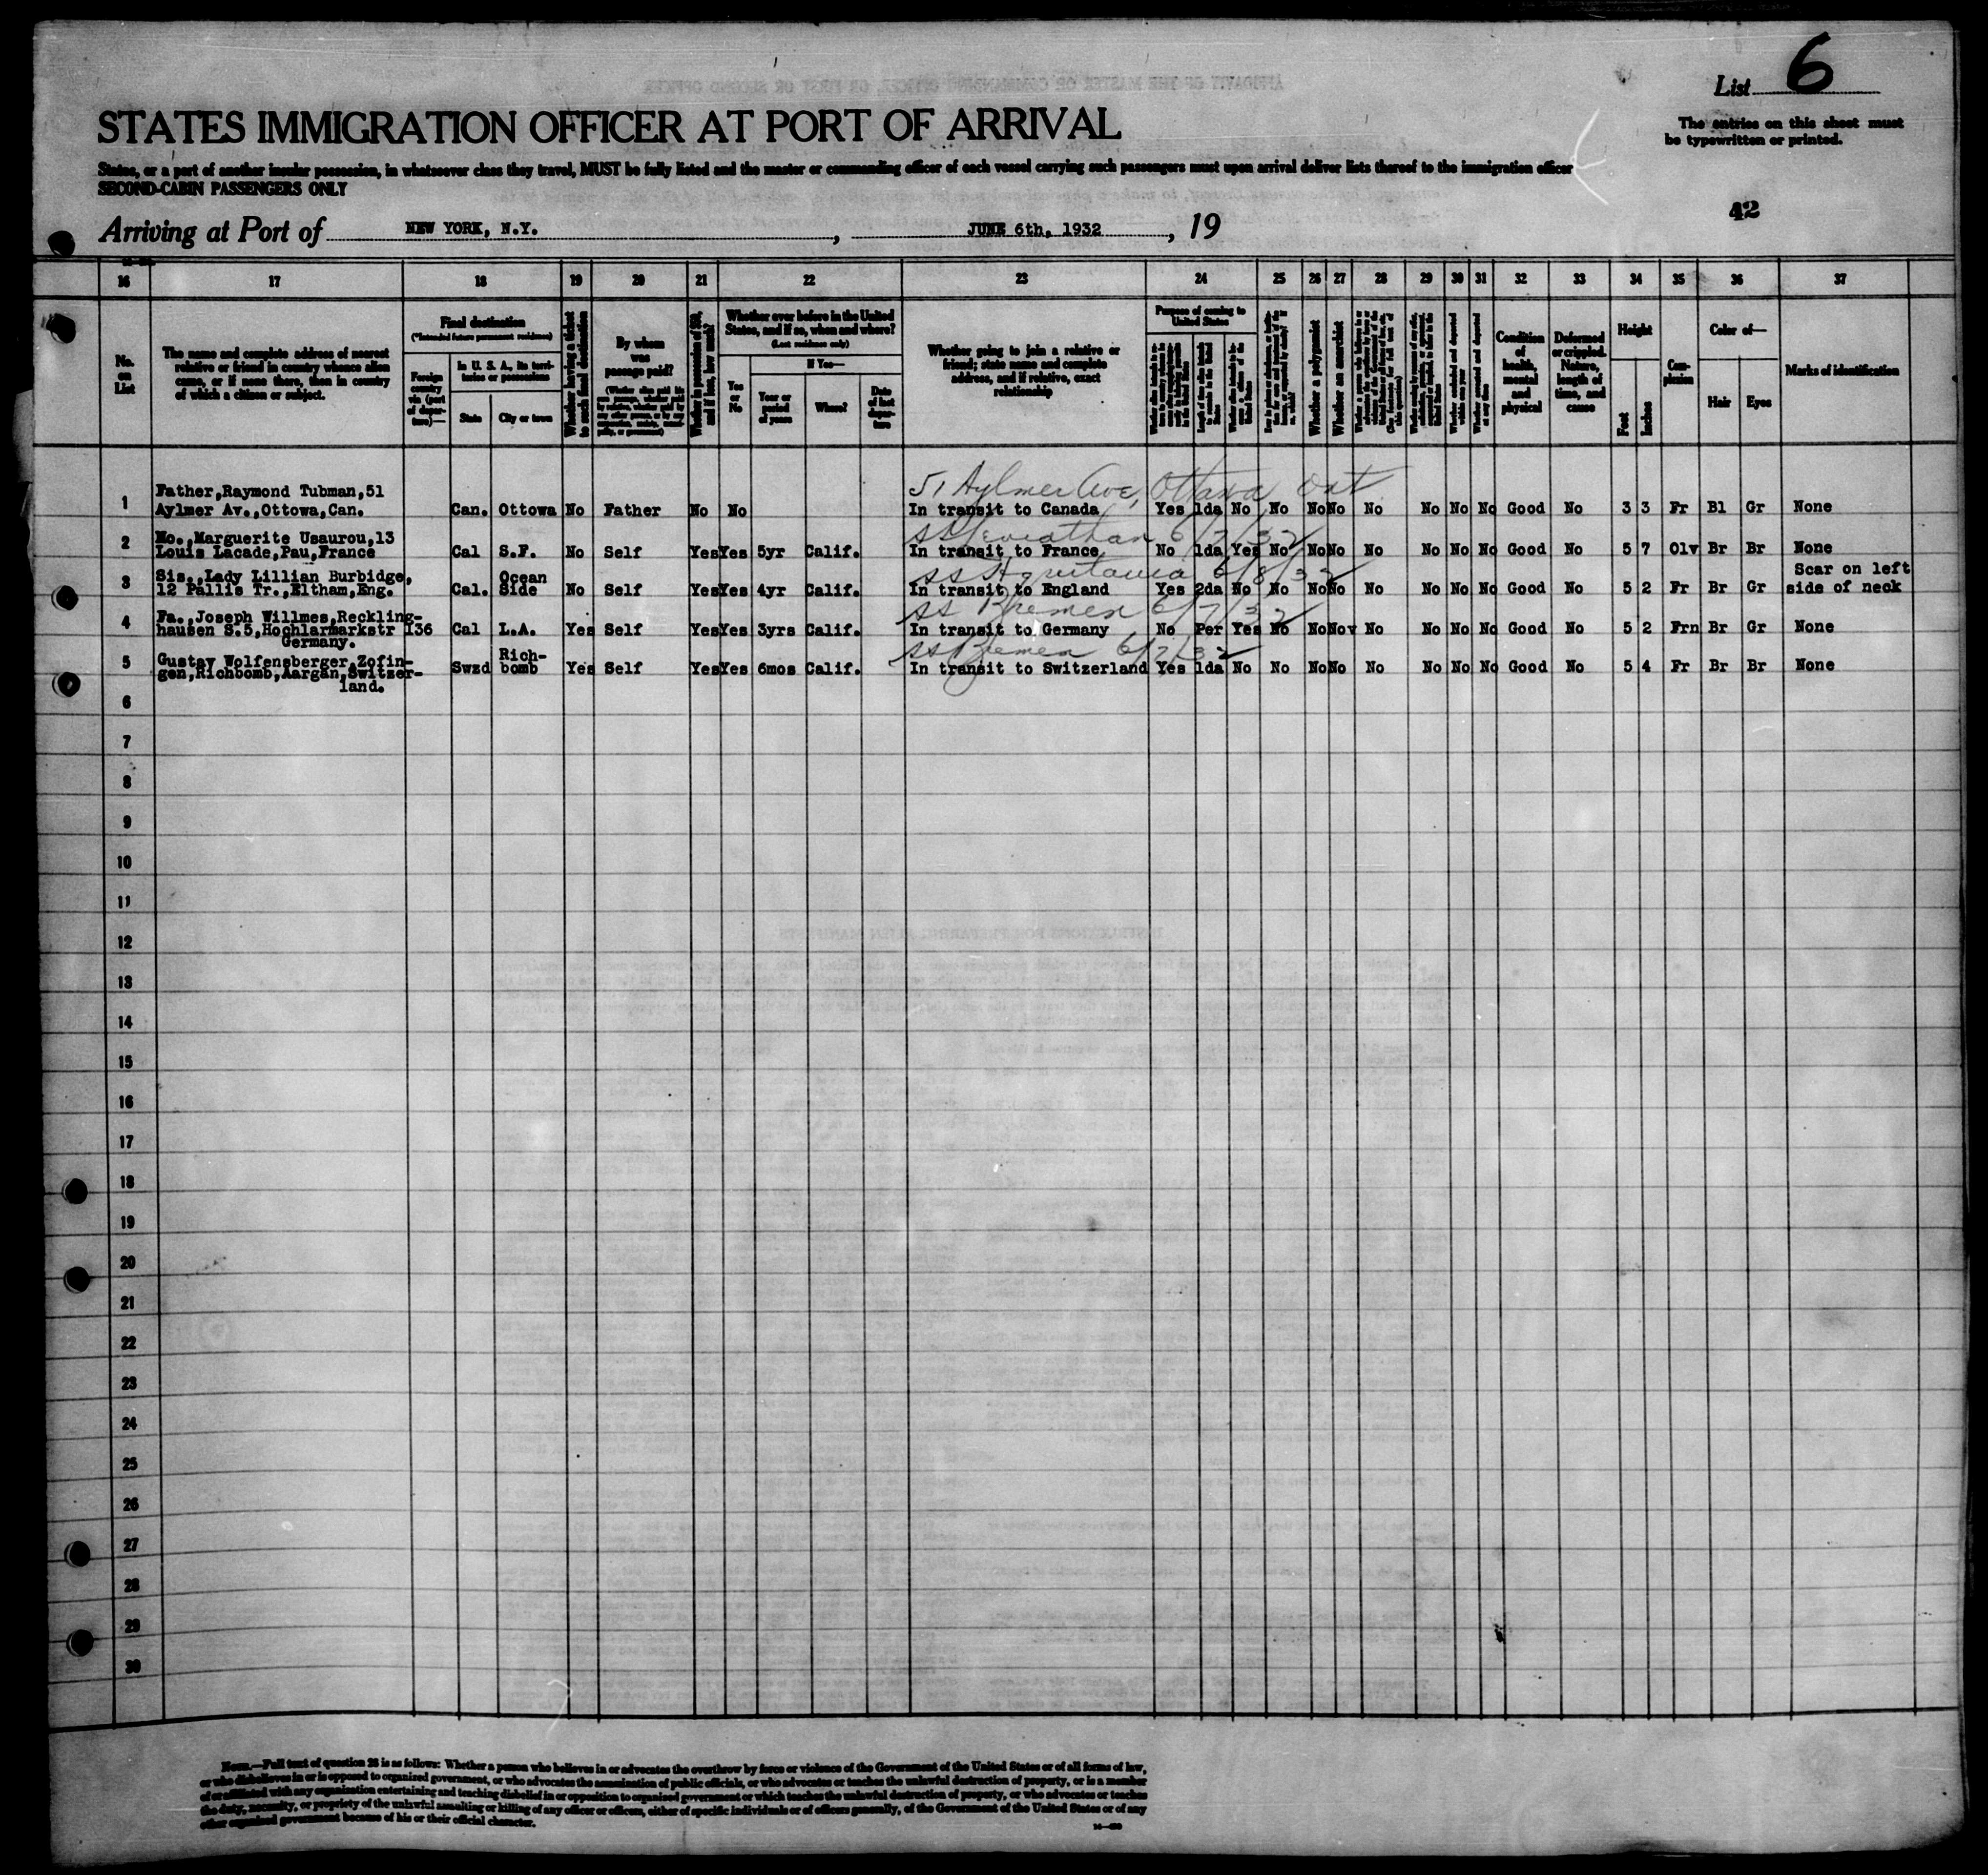 List 6
STATES IMMIGRATION OFFICER AT PORT OF ARRIVAL
The entries on this sheet must
be typewritten or printed.
States, or a part of another insular possession, in whatsoever class they travel, MUST be fully listed and the master or commanding officer of each vessel carrying such passengers must upon arrival deliver lists thereof to the immigration officer
SECOND-CABIN PASSENGERS ONLY
42
Arriving at Port of NEW YORK, N.Y. , JUNE 6th, 1932 , 19
16 17 18 19 20 21 22 23 24 25 26 27 28 29 30 31 32 33 34 35 36 37
No. on List
The name and complete address of nearest
relative or friend in country whence alien
came, or if none there, then in country
of which a citizen or subject.
Final destination
(*Intended future permanent residence)
Foreign country via (port of departure)—
In U. S. A., its territories or possessions
State
City or town
Whether having a ticket to such final destination
By whom was passage paid?
Whether in possession of $50, and if less, how much?
Whether ever before in the United States, and if so, when and where?
(Last residence only)
Yes or No
If Yes—
Year or period of years
Where?
Date of last departure
Whether going to join a relative or
friend; state name and complete
address, and if relative, exact
relationship
Purpose of coming to United States
Whether a polygamist
Whether an anarchist
Condition of health, mental and physical
Deformed or crippled. Nature, length of time, and cause
Height
Feet
Inches
Complexion
Color of—
Hair
Eyes
Marks of identification
51 Aylmer Ave, Ottawa Ont
1 Father,Raymond Tubman,51
Aylmer Av.,Ottowa,Can. Can. Ottowa No Father No No In transit to Canada Yes 1da No No No No No No No No Good No 3 3 Fr Bl Gr None
SS Leviathan 6/7/32
2 Mo.,Marguerite Usaurou,13
Louis Lacade,Pau,France Cal S.F. No Self Yes Yes 5yr Calif. In transit to France No 1da Yes No No No No No No No Good No 5 7 Olv Br Br None
SS Aquitania 6/8/32
3 Sis.,Lady Lillian Burbidge,
12 Pallis Tr.,Eltham,Eng. Cal. Ocean Side No Self Yes Yes 4yr Calif. In transit to England Yes 2da No No No No No No No No Good No 5 2 Fr Br Gr Scar on left side of neck
SS Bremen 6/7/32
4 Fa.,Joseph Willmes,Reckling-
hausen S.5,Hochlarmarkstr 136
Germany. Cal L.A. Yes Self Yes Yes 3yrs Calif. In transit to Germany No Per Yes No No Nov No No No No Good No 5 2 Frn Br Gr None
SS Bremen 6/7/32
5 Gustav Wolfensberger,Zofin-
gen,Richbomb,Aargan,Switzer-
land. Swzd Rich-bomb Yes Self Yes Yes 6mos Calif. In transit to Switzerland Yes 1da No No No No No No No No Good No 5 4 Fr Br Br None
6
7
8
9
10
11
12
13
14
15
16
17
18
19
20
21
22
23
24
25
26
27
28
29
30
NOTE.—Full text of question 28 is as follows: Whether a person who believes in or advocates the overthrow by force or violence of the Government of the United States or of all forms of law,
or who disbelieves in or is opposed to organized government, or who advocates the assassination of public officials, or who advocates or teaches the unlawful destruction of property, or is a member
of or affiliated with any organization entertaining and teaching disbelief in or opposition to organized government or which teaches the unlawful destruction of property, or who advocates or teaches
the duty, necessity, or propriety of the unlawful assaulting or killing of any officer or officers, either of specific individuals or of officers generally, of the Government of the United States or of any
other organized government because of his or their official character.